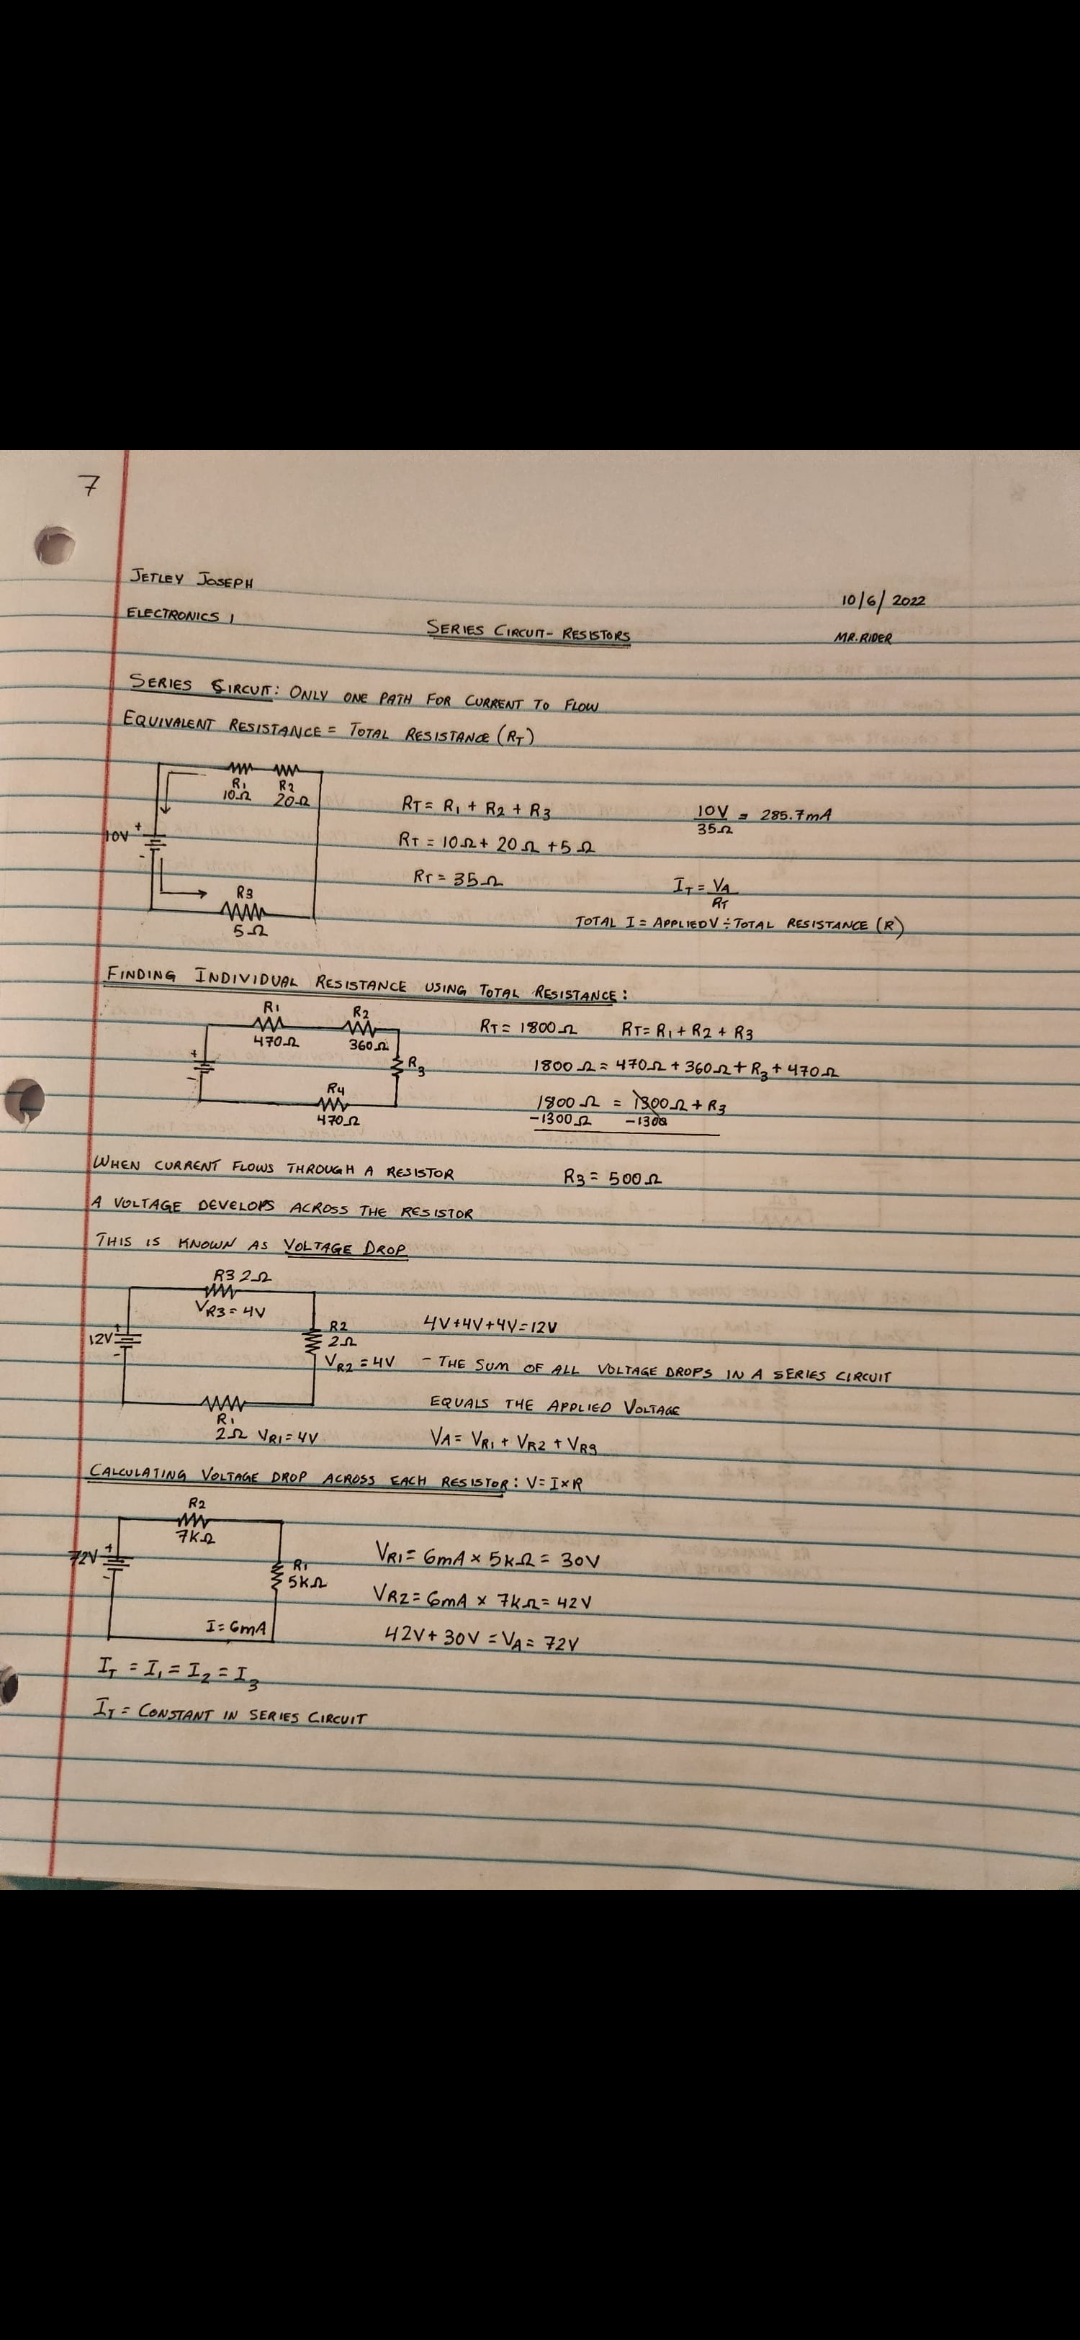 7
JETLEY JOSEPH
10/6/2022
ELECTRONICS 1
SERIES CIRCUIT- RESISTORS
MR. RIDER
SERIES CIRCUIT: ONLY ONE PATH FOR CURRENT TO FLOW
EQUIVALENT RESISTANCE = TOTAL RESISTANCE (RT)
R1 R2
10Ω 20Ω
10V + -
R3
5Ω
RT = R1 + R2 + R3
RT = 10Ω + 20Ω + 5Ω
RT = 35Ω
10V/35Ω = 285.7mA
IT = VA/RT
TOTAL I = APPLIED V ÷ TOTAL RESISTANCE (R)
FINDING INDIVIDUAL RESISTANCE USING TOTAL RESISTANCE:
R1 R2
470Ω 360Ω
+ -
R3
R4
470Ω
RT = 1800Ω RT = R1 + R2 + R3
1800Ω = 470Ω + 360Ω + R3 + 470Ω
1800Ω = 1300Ω + R3
-1300Ω -1300
R3 = 500Ω
WHEN CURRENT FLOWS THROUGH A RESISTOR
A VOLTAGE DEVELOPS ACROSS THE RESISTOR
THIS IS KNOWN AS VOLTAGE DROP
R3 2Ω
VR3 = 4V
12V + -
R2
2Ω
VR2 = 4V
R1
2Ω VR1 = 4V
4V+4V+4V=12V
- THE SUM OF ALL VOLTAGE DROPS IN A SERIES CIRCUIT
EQUALS THE APPLIED VOLTAGE
VA = VR1 + VR2 + VR3
CALCULATING VOLTAGE DROP ACROSS EACH RESISTOR: V=I×R
R2
7KΩ
72V + -
R1
5KΩ
I=6mA
VR1 = 6mA × 5KΩ = 30V
VR2 = 6mA × 7KΩ = 42V
42V + 30V = VA = 72V
IT = I1 = I2 = I3
IT = CONSTANT IN SERIES CIRCUIT